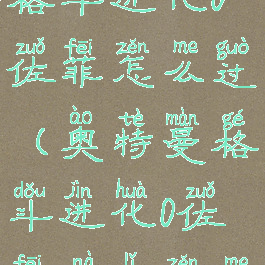 格斗进化0
zuǒ fēi zěn me guò
佐菲怎么过
ào tè màn gé
(奥特曼格
dòu jìn huà zuǒ
斗进化0佐
fēi nà lǐ zěn me